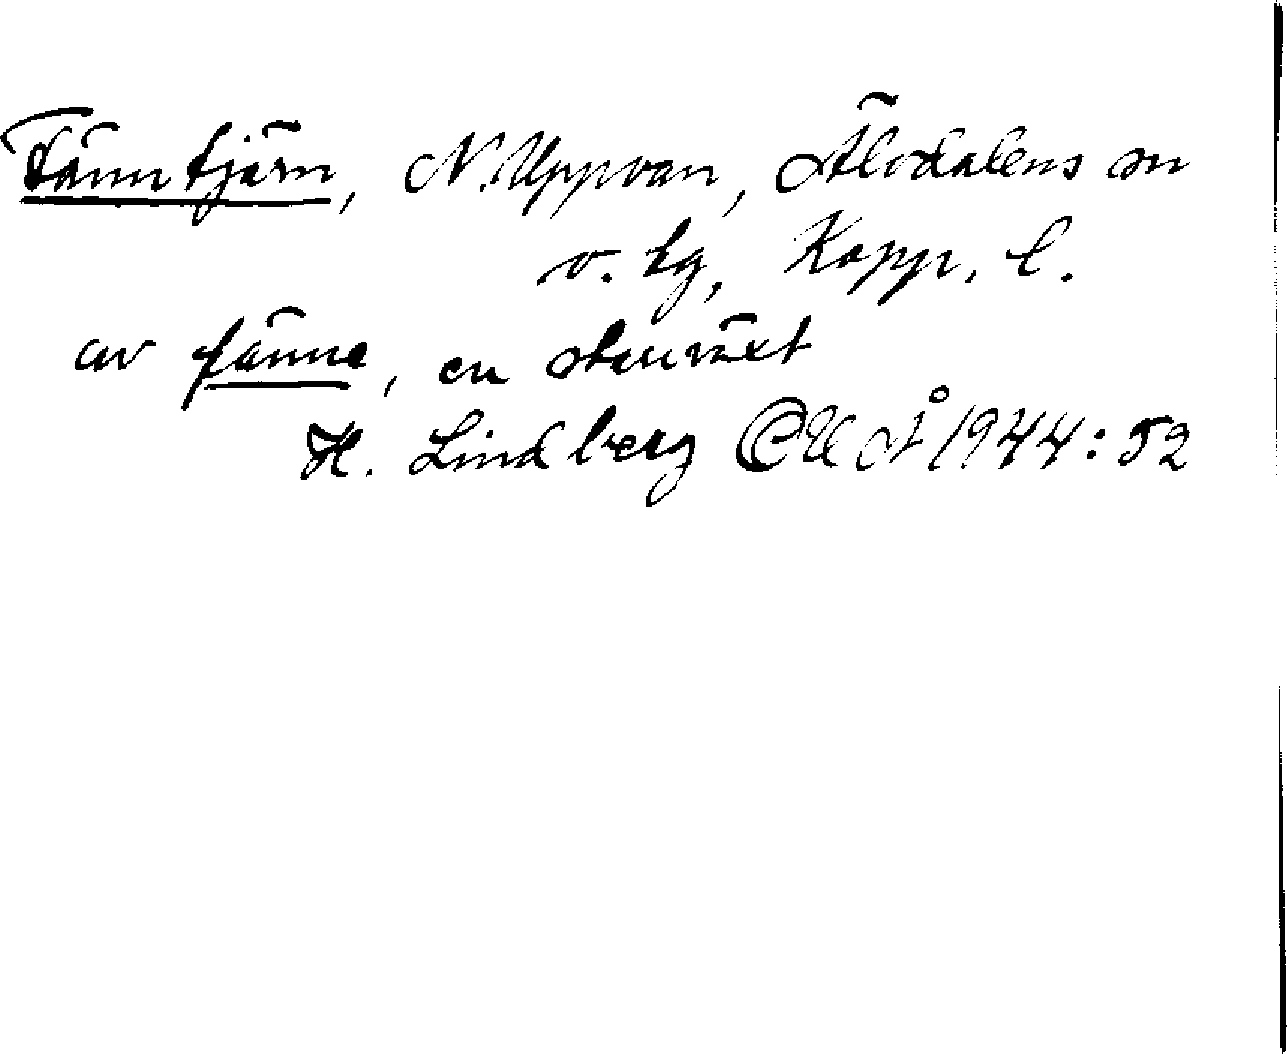 Fänntjärn, N. Uppvan, Älvdalens sn
v. tg, Kopp. l.
av fänne, en starrväxt
H. Lindberg OUÅ 1944:52